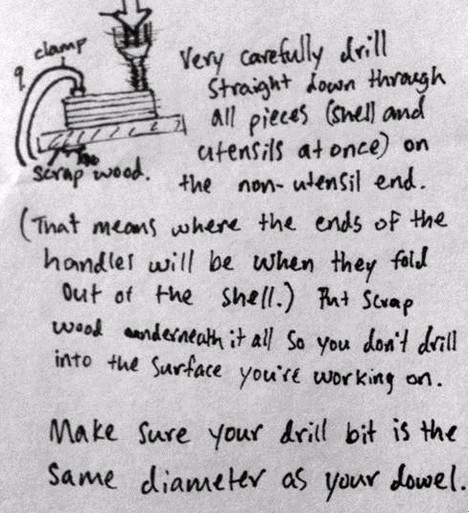 clamp
Very carefully drill
straight down through
all pieces (shell and
utensils at once) on
scrap wood.
the non-utensil end.
(That means where the ends of the
handles will be when they fold
out of the shell.) Put scrap
wood underneath it all so you don't drill
into the surface you're working on.
Make sure your drill bit is the
same diameter as your dowel.